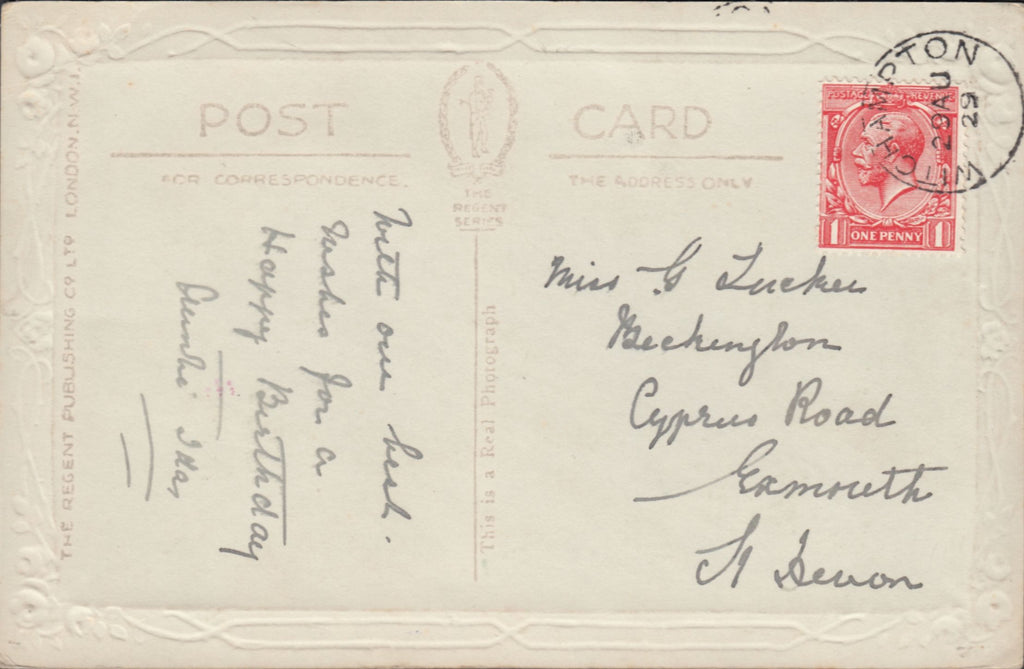 POST CARD
FOR CORRESPONDENCE.
THE ADDRESS ONLY.
THE
REGENT
SERIES
THE REGENT PUBLISHING CO LTD LONDON.N.W.1.
This is a Real Photograph
POSTAGE REVENUE
ONE PENNY
1 1
WITCHAMPTON
29 AU
29
With our best
wishes for a
Happy Birthday
Auntie Ida,
Miss G Tucker
Beckington
Cyprus Road
Exmouth
Devon